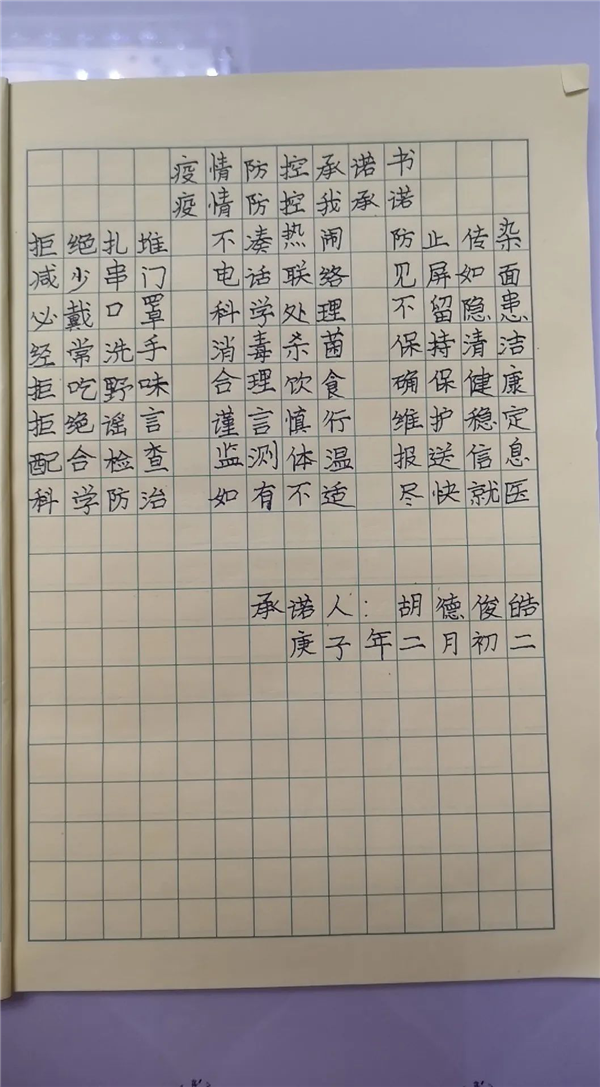 疫情防控承诺书
疫情防控我承诺
拒绝扎堆 不凑热闹 防止传染
减少串门 电话联络 见屏如面
必戴口罩 科学处理 不留隐患
经常洗手 消毒杀菌 保持清洁
拒吃野味 合理饮食 确保健康
拒绝谣言 谨言慎行 维护稳定
配合检查 监测体温 报送信息
科学防治 如有不适 尽快就医
承诺人:胡德俊皓
庚子年二月初二